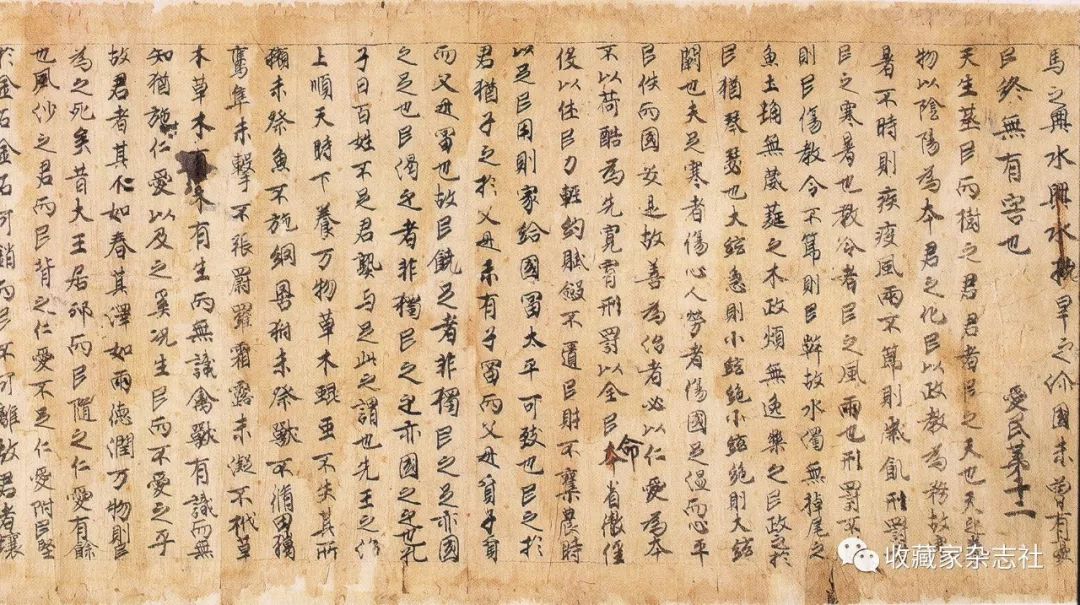 馬之興水水旱之國未曾有
民終無有害也 愛民第十二
天生蒸民而樹之君君者民之天也天之
物以陰陽為本君之化民以政教為務故
暑不時則疾疫風雨不節則歲飢刑罰
民之寒暑也教令者民之風雨也刑罰不
則民傷教令不節則民弊故水濁無掉尾之
魚土埆無葳蕤之木政煩無逸樂之民政之於
民猶琴瑟也大絃急則小絃絕小絃絕則大絃
闕也夫足寒者傷心人勞者傷國足溫而心平
民佚而國安是故善為治者必以仁愛為本
不以苛酷為先寬宥刑罰以全民命省徹徭
役以住民力輕約賦斂不遺民財不奪農時
以足民用則家給國富太平可致也民之於
君猶子之於父母未有子富而父母貧子貧
而父母富也故民饒足者非獨民之足亦國
之足也民渴乏者非獨民之乏亦國之乏也孔
子曰百姓不足君孰与足此之謂也先王之治
上順天時下養万物草木鯤虫不失其所
獺未祭魚不施網罟豺未祭獸不脩田獵
鷹隼未擊不張罻羅霜露未凝不伐草
木草木木有生而無識禽獸有識而無
知猶施仁愛以及之奚況生民而不愛之乎
故君者其仁如春其澤如雨德潤万物則民
為之死矣昔大王居邠而民隨之仁愛有餘
也風沙之君而民背之仁愛不足仁愛附民堅
於金石金石可銷而民不可離故君者壤
收藏家杂志社